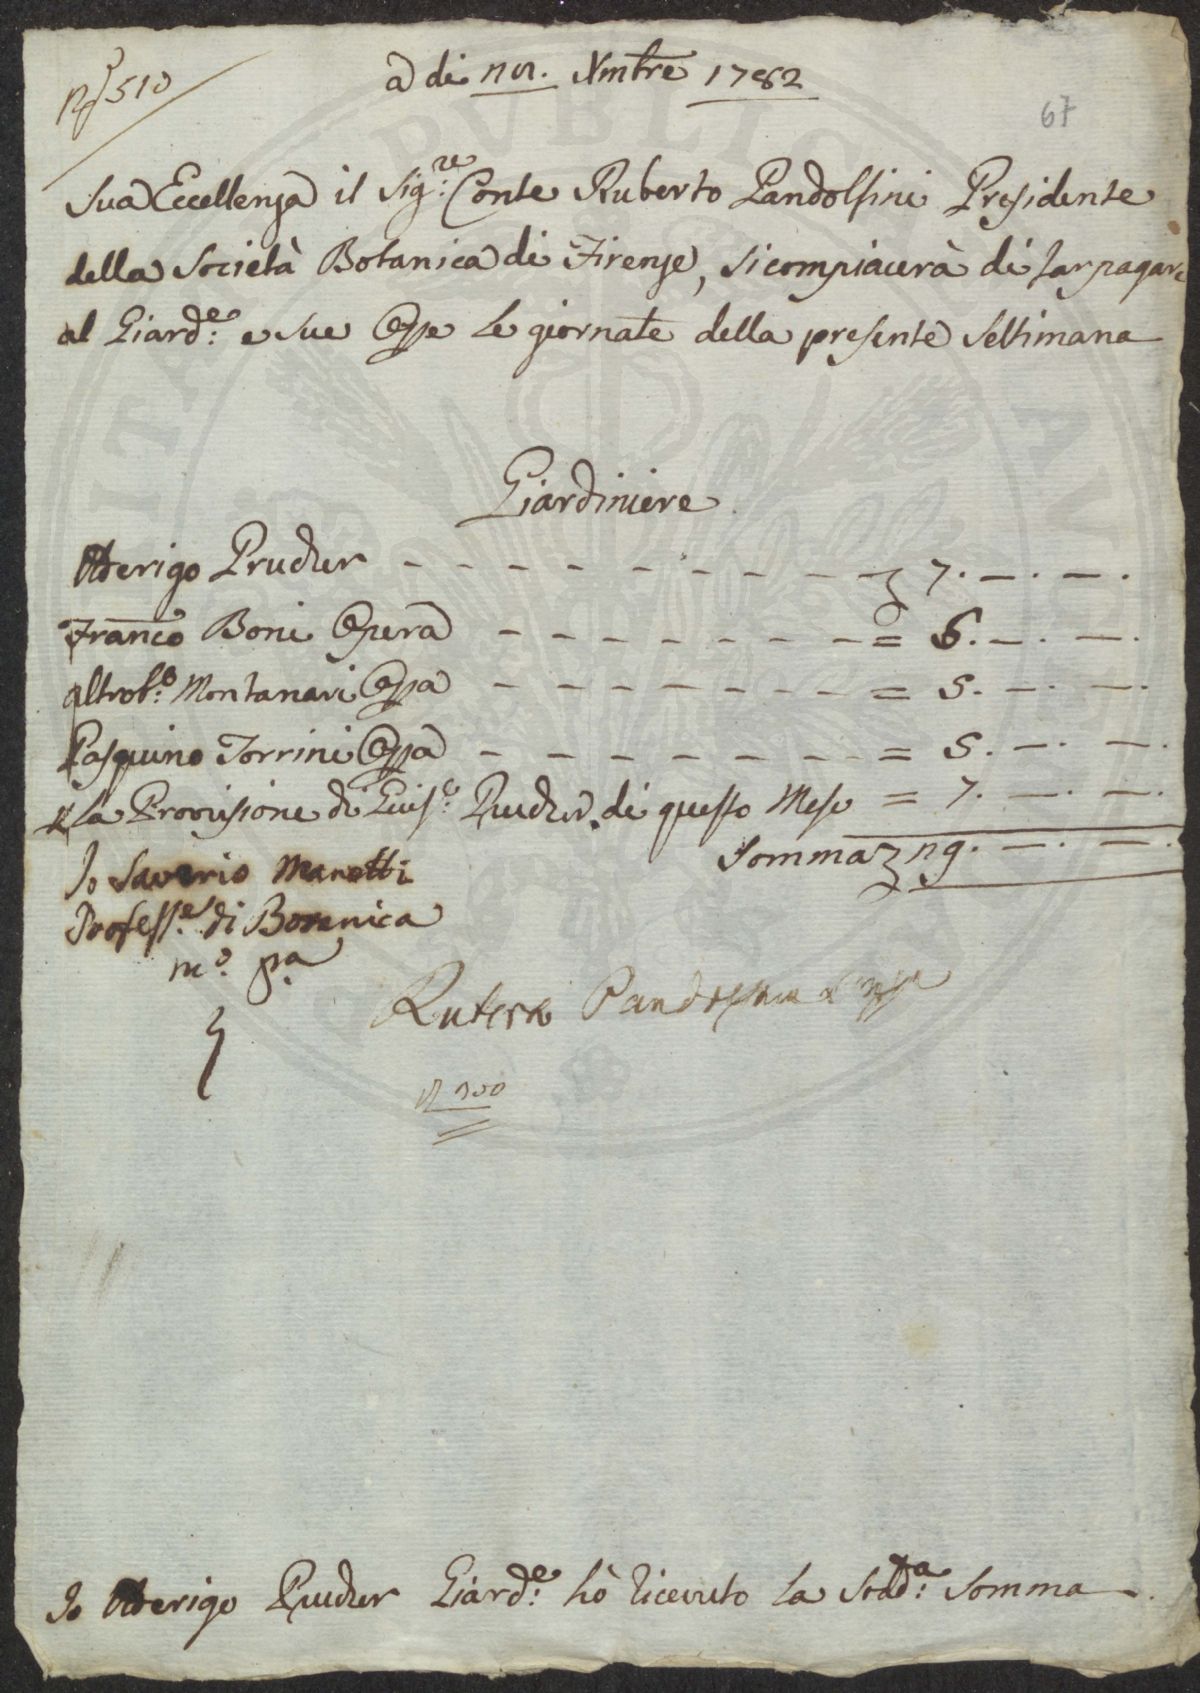 N° 510
a di 21. Xmbre 1782
67
Sua Eccellenza il Sig:re Conte Ruberto Pandolfini Presidente
della Società Botanica di Firenze, si compiacerà di far pagare
al Giard:e e sue Opre le giornate della presente Settimana
Giardiniere
Arrigo Prucher - - - - - - - - - - £ 7. —. —.
Franco Boni Opera - - - - - - - - = 6. —. —.
Altrob:o Montanari Oppa - - - - - - - - = 5. —. —.
Pasquino Torrini Oppa - - - - - - - - = 5. —. —.
La Provvisione di Guis:e Prucher. di questo Mese = 7. —. —.
Somma £ 29. —. —.
Io Saverio Manetti
Profess:e di Botanica
m:o pa
Ruberto Pandolfini
Io Arrigo Prucher Giard:e hò ricevuto la Sodd:a Somma —.